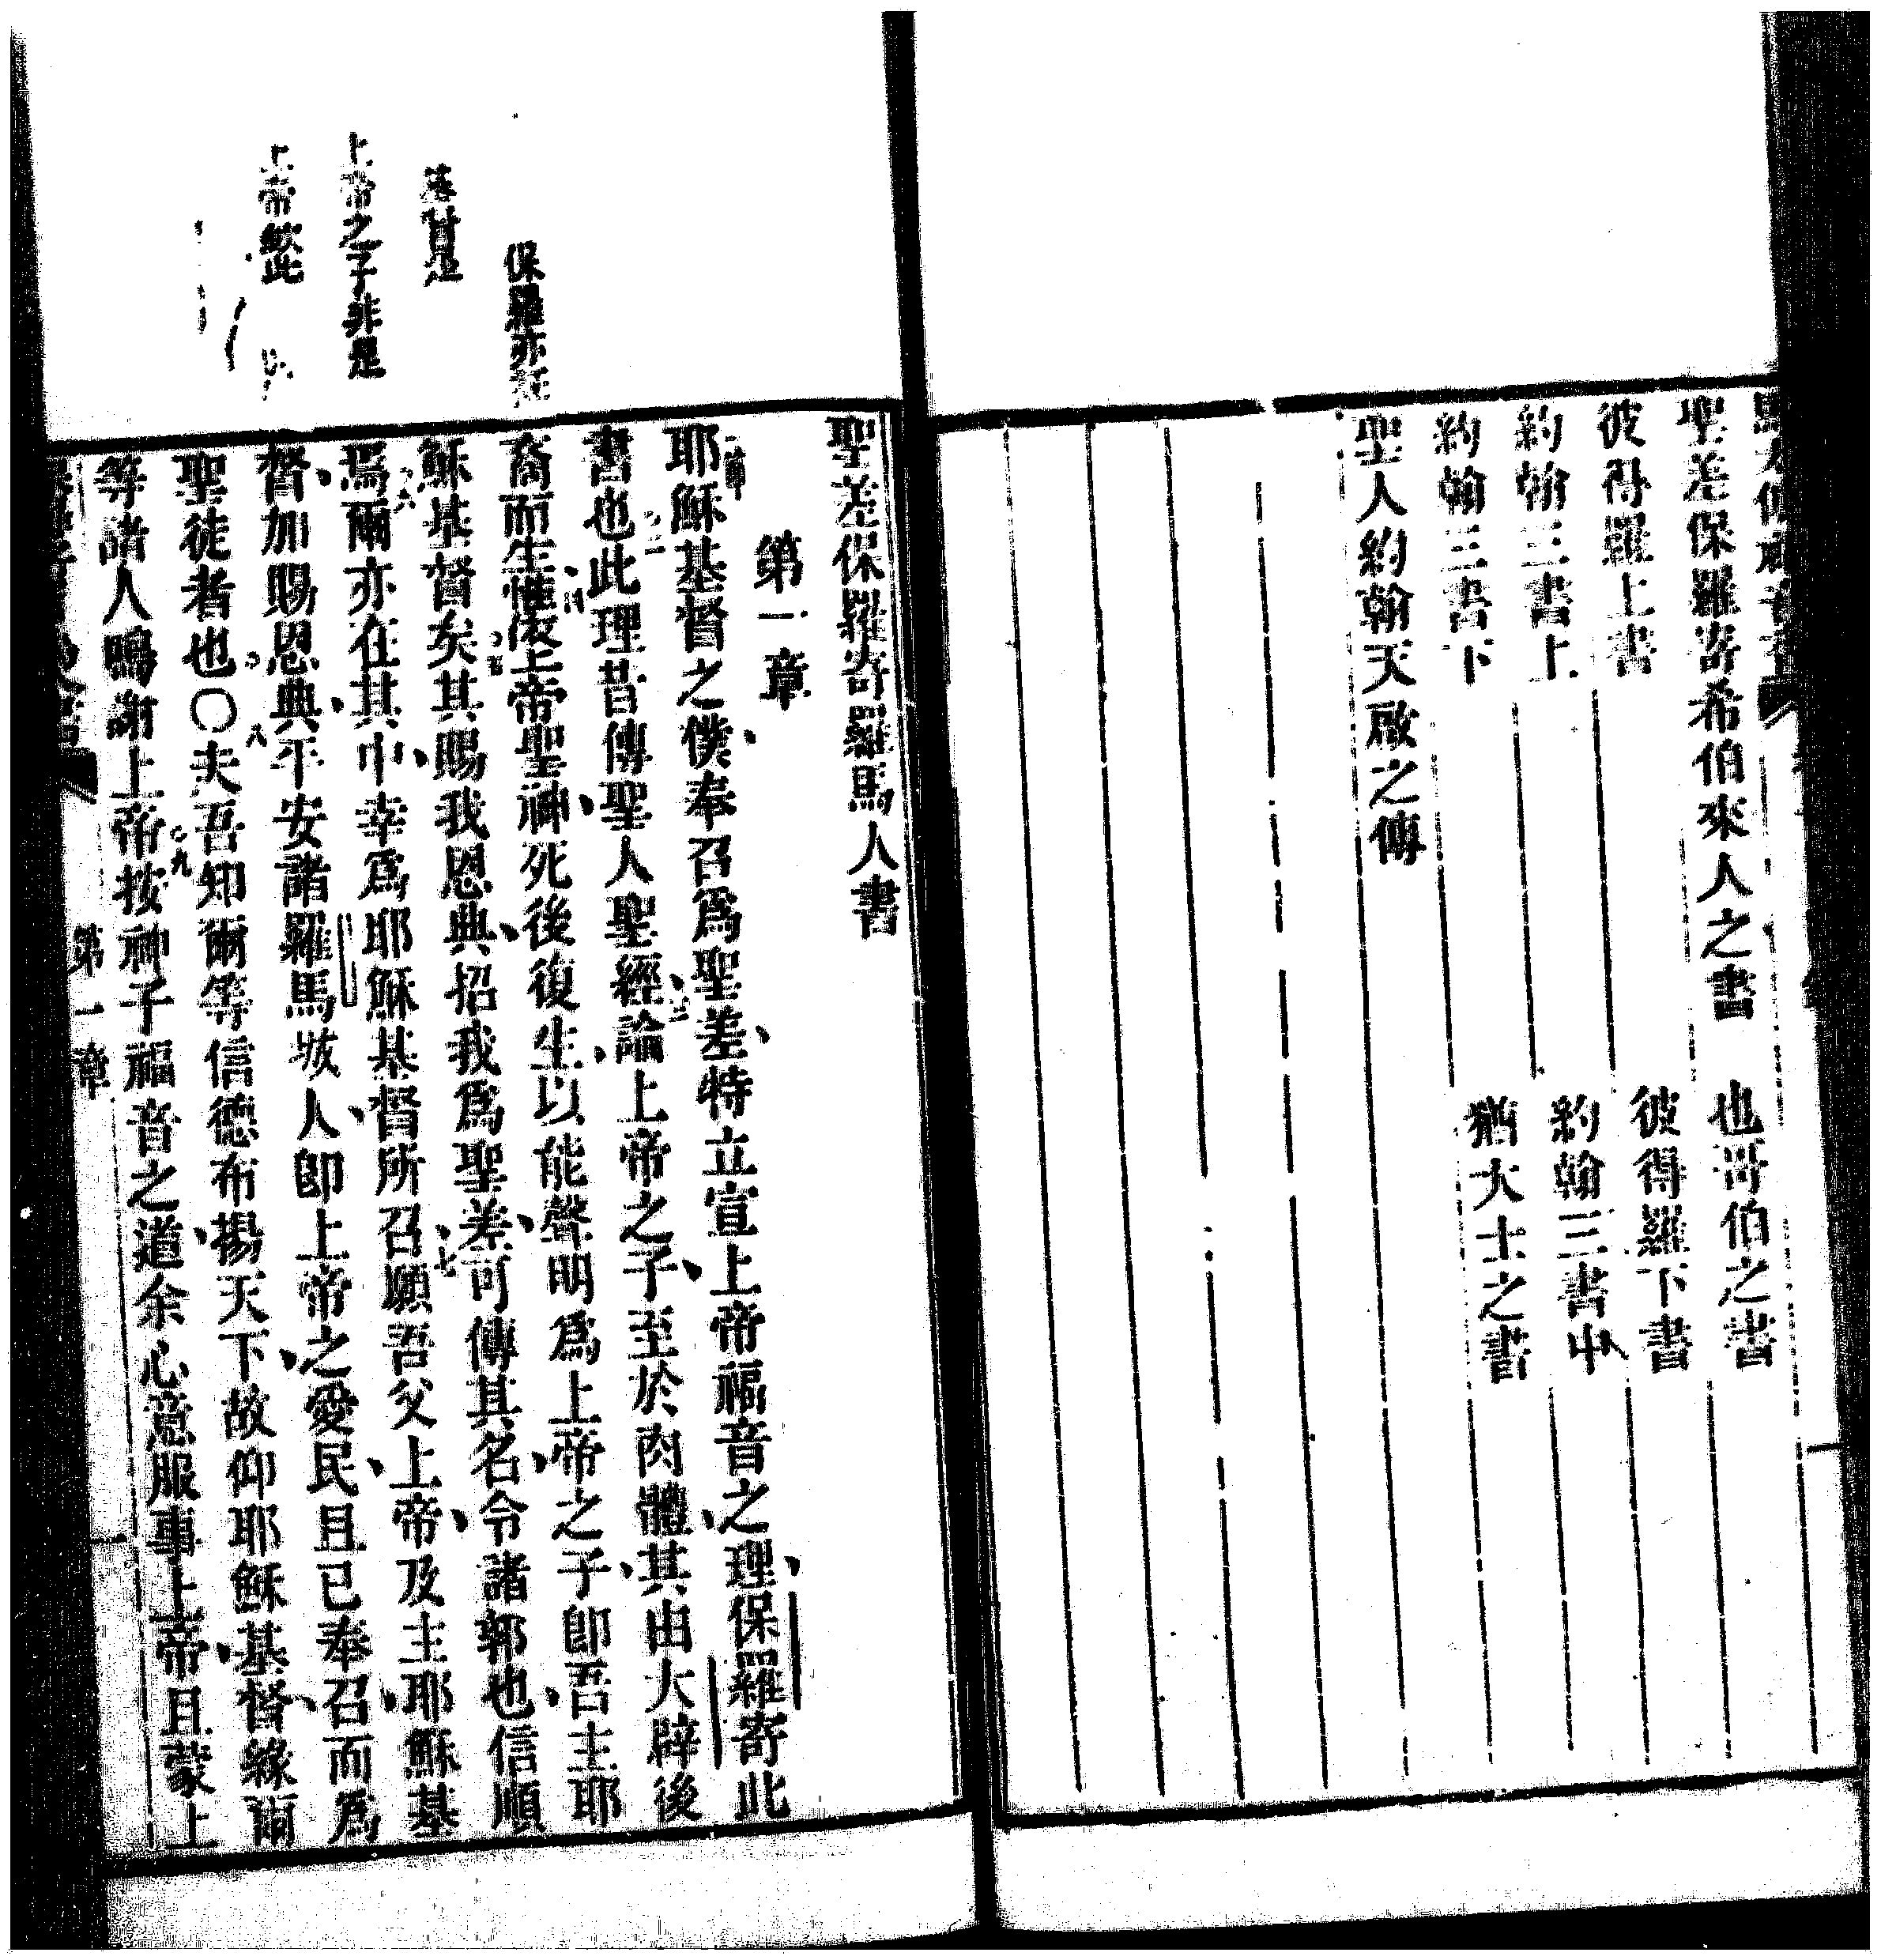 聖差保羅寄希伯來人之書　也哥伯之書
彼得羅上書　彼得羅下書
約翰三書上　約翰三書中
約翰三書下　猶大士之書
聖人約翰天啟之傳
聖差保羅寄羅馬人書
第一章
耶穌基督之僕奉召為聖差特立宣上帝福音之理保羅寄此
書也此理昔傳聖人聖經論上帝之子至於肉體其由大辟後
裔而生惟依上帝聖神死後復生以能聲明為上帝之子即吾主耶
穌基督矣其賜我恩典招我為聖差可傳其名令諸邦也信順
焉爾亦在其中幸為耶穌基督所召願吾父上帝及主耶穌基
督加賜恩典平安諸羅馬城人即上帝之愛民且已奉召而為
聖徒者也〇夫吾知爾等信德布揚天下故仰耶穌基督緣爾
等諸人鳴謝上帝按神子福音之道余心意服事上帝且蒙上
第一章
保羅亦
上帝之子非是
上帝